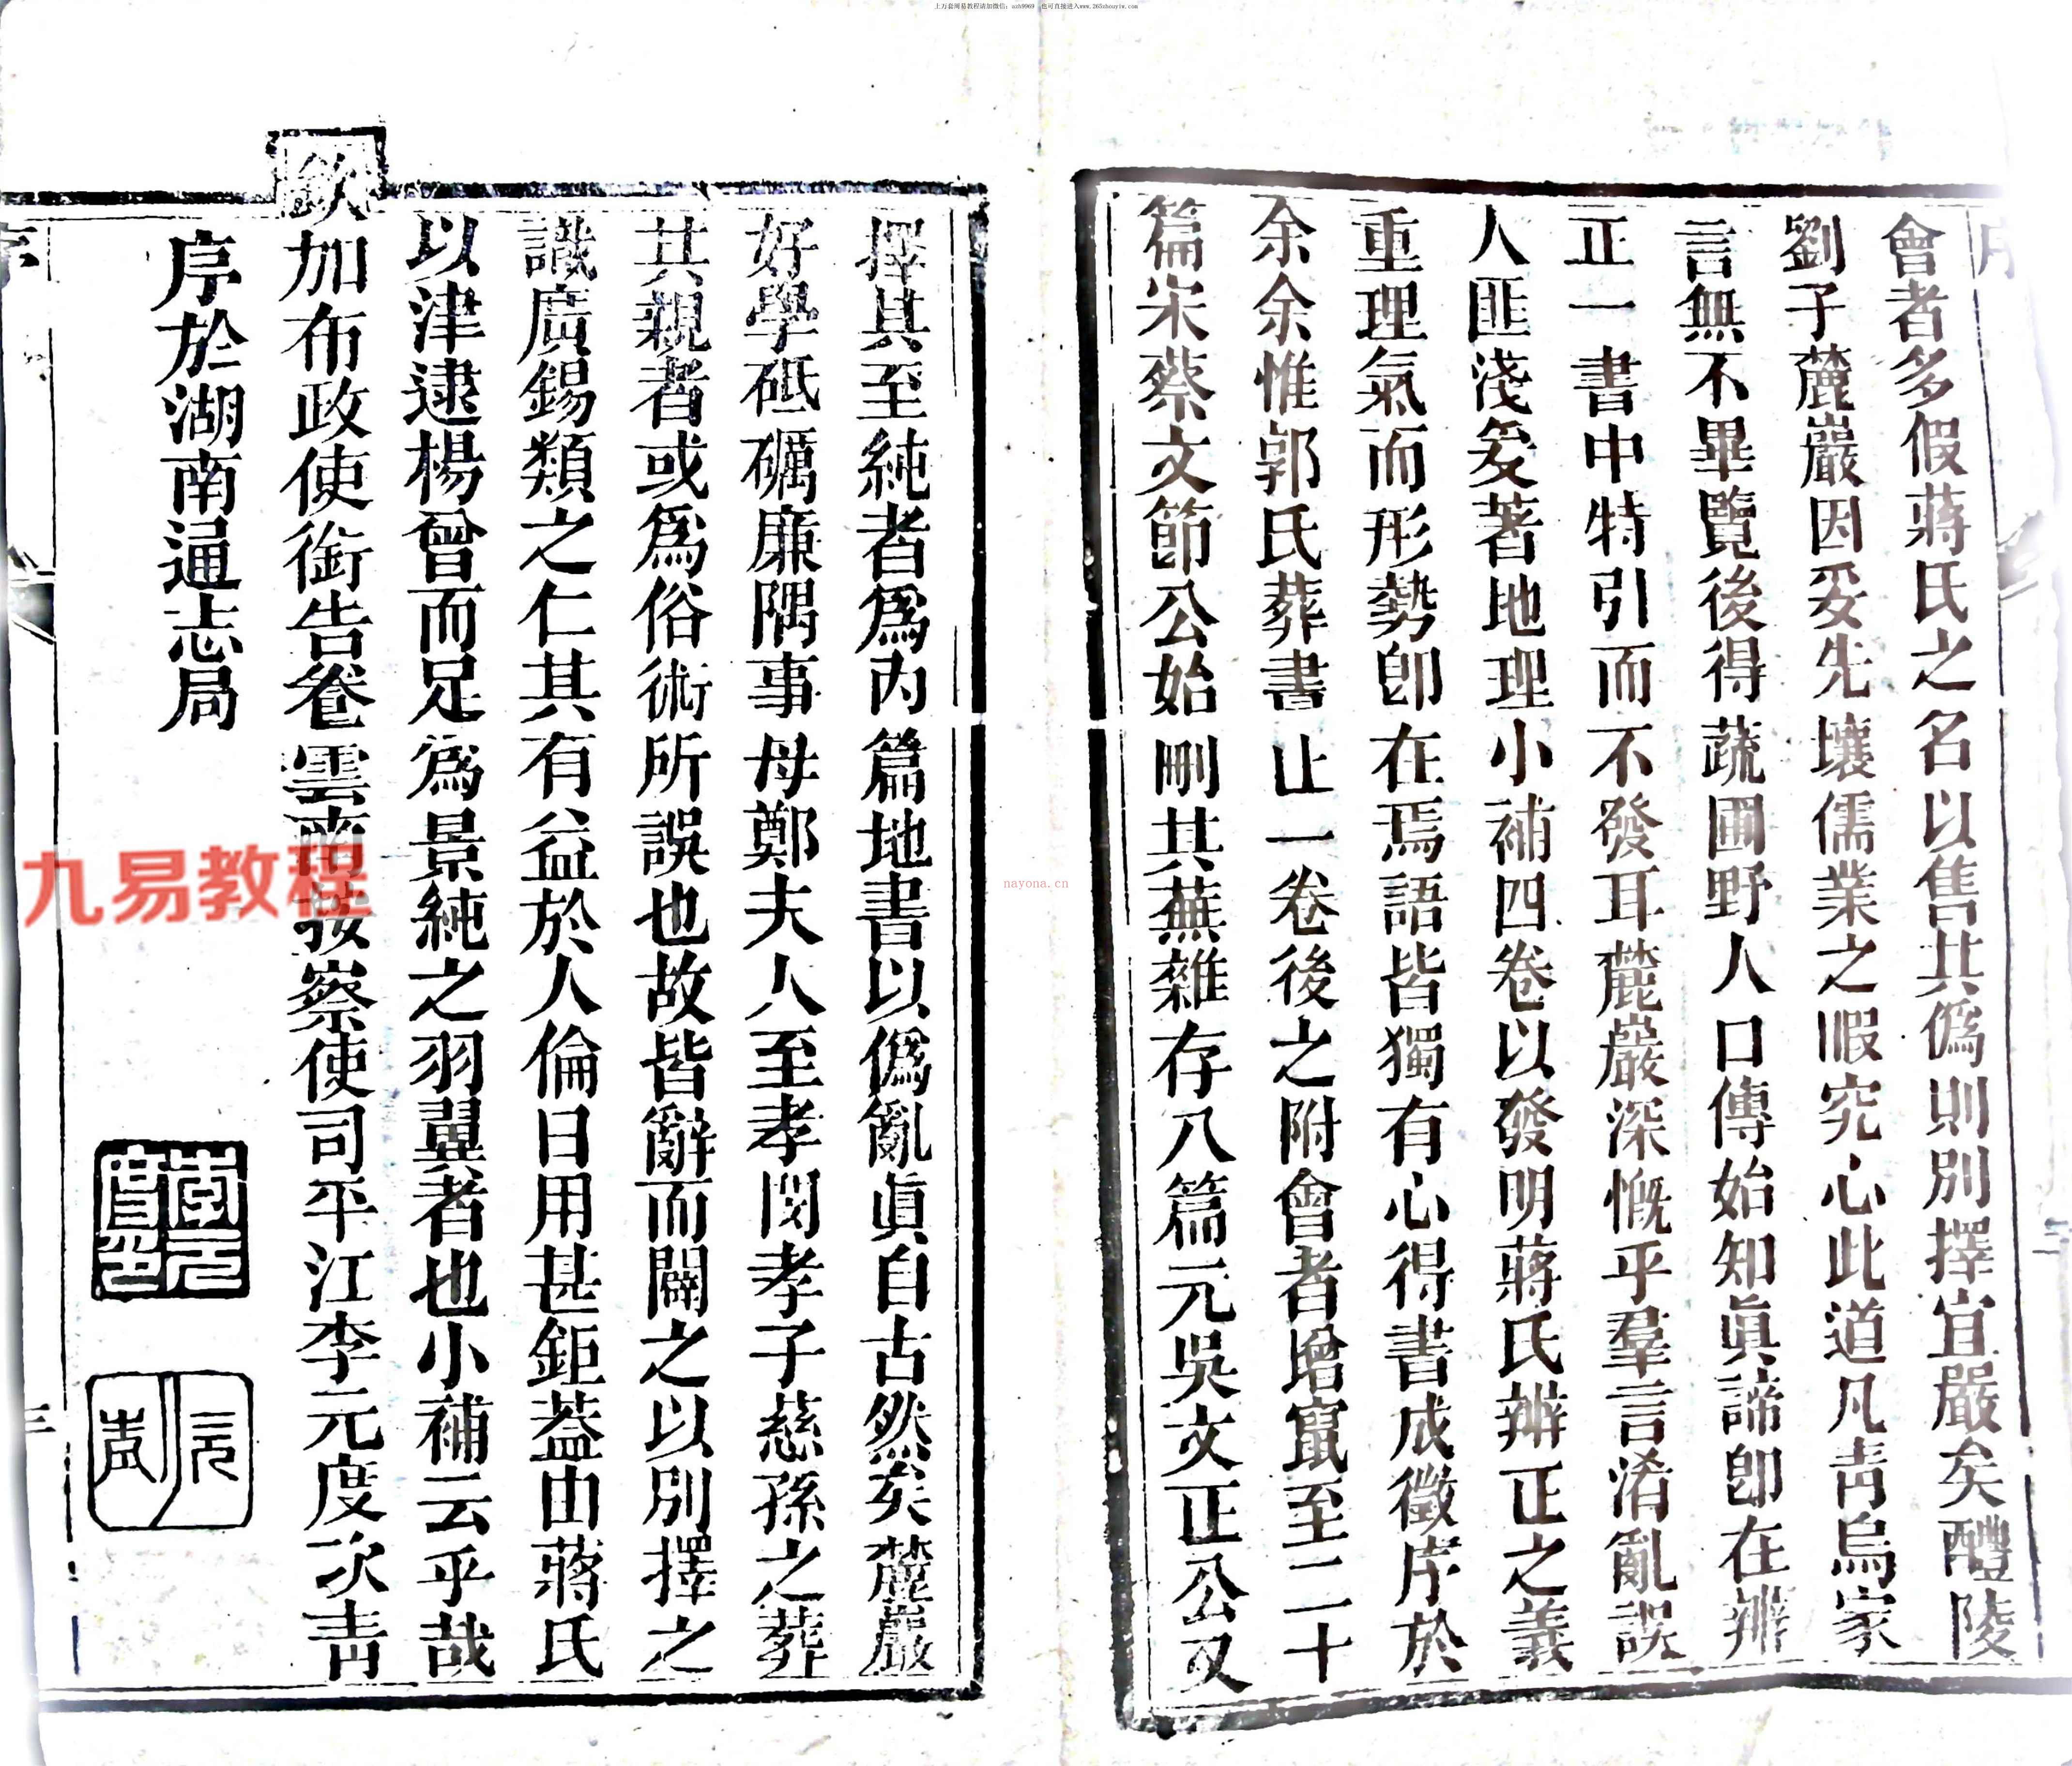 上万套周易教程请加微信：
也可直接进入www.265zhouyiw.com
會者多假蔣氏之名以售其僞則別擇宜嚴矣醴陵
劉子麓巖因妥先壤儒業之暇究心此道凡靑烏家
言無不畢覽後得蔬圃野人口傳始知眞諦卽在辨
正一書中特引而不發耳麓巖深慨乎羣言淆亂誤
人匪淺爰著地理小補四卷以發明蔣氏辨正之義
重理氣而形勢卽在焉語皆獨有心得書成徵序於
余余惟郭氏葬書止一卷後之附會者增竄至二十
篇宋蔡文節公始刪其蕪雜存八篇元吳文正公又
擇其至純者爲內篇地書以僞亂眞自古然矣麓巖
好學砥礪廉隅事母鄭夫人至孝閔孝子慈孫之葬
其親者或爲俗術所誤也故皆辭而闢之以別擇之
識廣錫類之仁其有益於人倫日用甚鉅蓋由蔣氏
以津逮楊曾而足爲景純之羽翼者也小補云乎哉
欽加布政使銜告養雲南按察使司平江李元度次靑
序於湖南通志局
序
三
李元度印
九易教程
nayona.cn